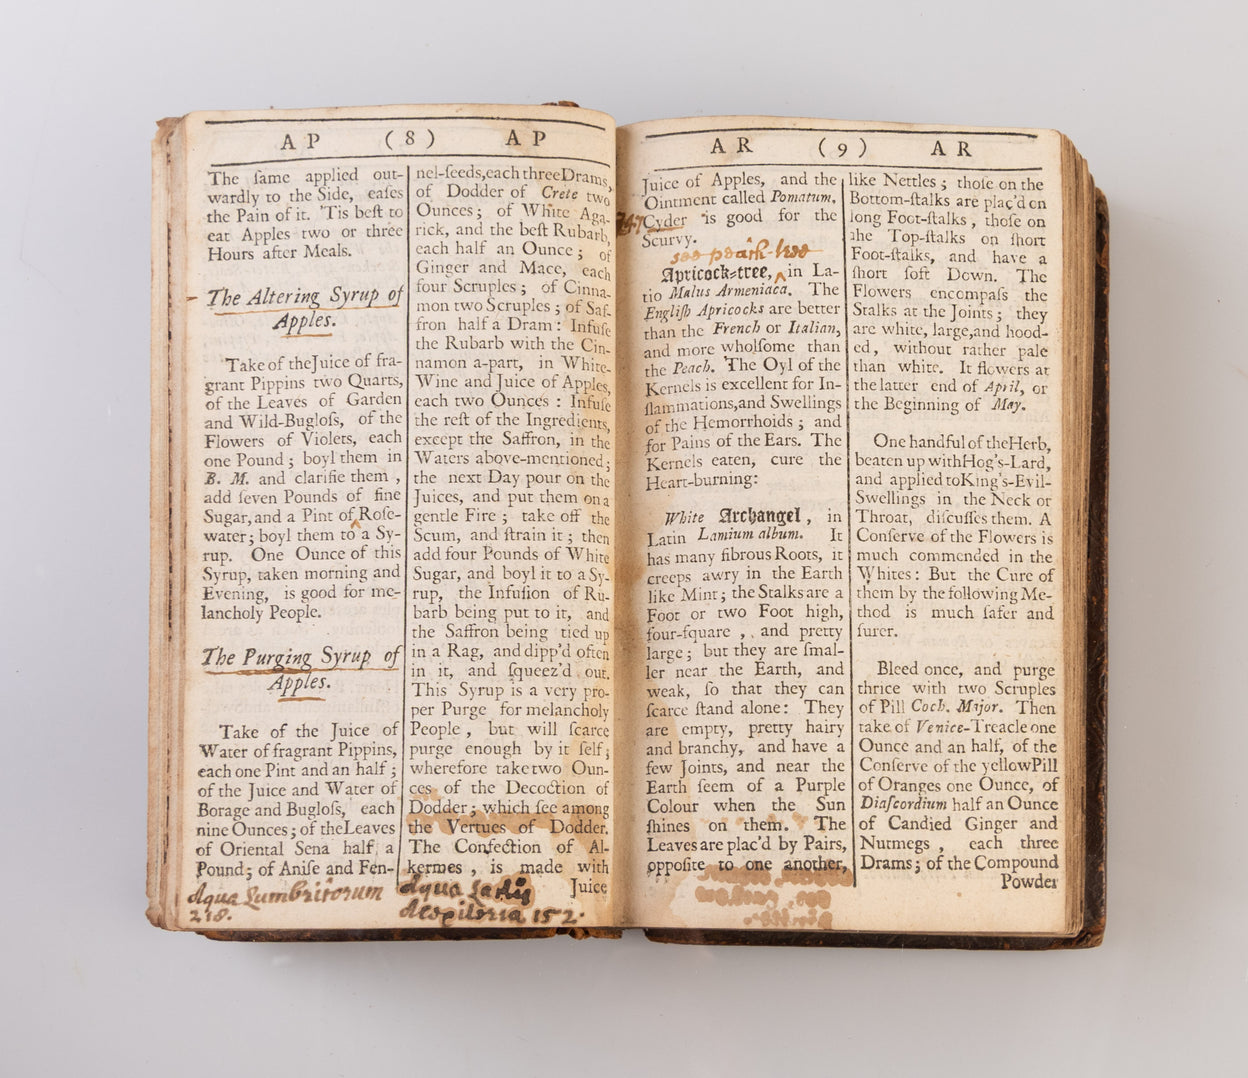 AP ( 8 ) AP
The ſame applied out-
wardly to the Side, eaſes
the Pain of it. 'Tis beſt to
eat Apples two or three
Hours after Meals.
The Altering Syrup of
Apples.
Take of the Juice of fra-
grant Pippins two Quarts,
of the Leaves of Garden
and Wild-Bugloſs, of the
Flowers of Violets, each
one Pound; boyl them in
B. M. and clarifie them,
add ſeven Pounds of fine
Sugar, and a Pint of Roſe-
water; boyl them to a Sy-
rup. One Ounce of this
Syrup, taken morning and
Evening, is good for me-
lancholy People.
The Purging Syrup of
Apples.
Take of the Juice of
Water of fragrant Pippins,
each one Pint and an half;
of the Juice and Water of
Borage and Bugloſs, each
nine Ounces; of the Leaves
of Oriental Sena half a
Pound; of Aniſe and Fen-
Aqua Lumbritorum
218.
nel-ſeeds, each three Drams,
of Dodder of Crete two
Ounces; of White Aga-
rick, and the beſt Rubarb,
each half an Ounce; of
Ginger and Mace, each
four Scruples; of Cinna-
mon two Scruples; of Saf-
fron half a Dram: Infuſe
the Rubarb with the Cin-
namon a-part, in White-
Wine and Juice of Apples,
each two Ounces: Infuſe
the reſt of the Ingredients,
except the Saffron, in the
Waters above-mentioned;
the next Day pour on the
Juices, and put them on a
gentle Fire; take off the
Scum, and ſtrain it; then
add four Pounds of White
Sugar, and boyl it to a Sy-
rup, the Infuſion of Ru-
barb being put to it, and
the Saffron being tied up
in a Rag, and dipp'd often
in it, and ſqueez'd out.
This Syrup is a very pro-
per Purge for melancholy
People, but will ſcarce
purge enough by it ſelf;
wherefore take two Oun-
ces of the Decoction of
Dodder; which ſee among
the Vertues of Dodder.
The Confection of Al-
kermes, is made with
Juice
Aqua
152.
AR ( 9 ) AR
Juice of Apples, and the
Ointment called Pomatum.
Cyder is good for the
Scurvy.
see peach-tree
Apricock-tree, in La-
tio Malus Armeniaca. The
Engliſh Apricocks are better
than the French or Italian,
and more wholſome than
the Peach. The Oyl of the
Kernels is excellent for In-
flammations, and Swellings
of the Hemorrhoids; and
for Pains of the Ears. The
Kernels eaten, cure the
Heart-burning:
White Archangel, in
Latin Lamium album. It
has many fibrous Roots, it
creeps awry in the Earth
like Mint; the Stalks are a
Foot or two Foot high,
four-ſquare, and pretty
large; but they are ſmal-
ler near the Earth, and
weak, ſo that they can
ſcarce ſtand alone: They
are empty, pretty hairy
and branchy, and have a
few Joints, and near the
Earth ſeem of a Purple
Colour when the Sun
ſhines on them. The
Leaves are plac'd by Pairs,
oppoſite to one another,
like Nettles; thoſe on the
Bottom-ſtalks are plac'd on
long Foot-ſtalks, thoſe on
the Top-ſtalks on ſhort
Foot-ſtalks, and have a
ſhort ſoft Down. The
Flowers encompaſs the
Stalks at the Joints; they
are white, large, and hood-
ed, without rather pale
than white. It flowers at
the latter end of April, or
the Beginning of May.
One handful of the Herb,
beaten up with Hog's-Lard,
and applied to King's-Evil-
Swellings in the Neck or
Throat, diſcuſſes them. A
Conſerve of the Flowers is
much commended in the
Whites: But the Cure of
them by the following Me-
thod is much ſafer and
ſurer.
Bleed once, and purge
thrice with two Scruples
of Pill Coch. Major. Then
take of Venice-Treacle one
Ounce and an half, of the
Conſerve of the yellow Pill
of Oranges one Ounce, of
Diaſcordium half an Ounce
of Candied Ginger and
Nutmegs, each three
Drams; of the Compound
Powder